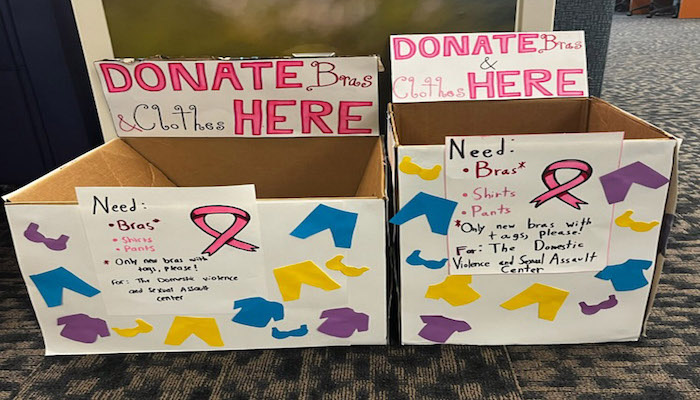 DONATE Bras
& Clothes HERE
Need:
• Bras*
• Shirts
• Pants
* Only new bras with
tags, please!
For: The Domestic Violence
and Sexual Assault
center
DONATE Bras
&
Clothes HERE
Need:
• Bras*
• Shirts
• Pants
*Only new bras with
tags, please!
For: The Domestic
Violence and Sexual Assault
Center